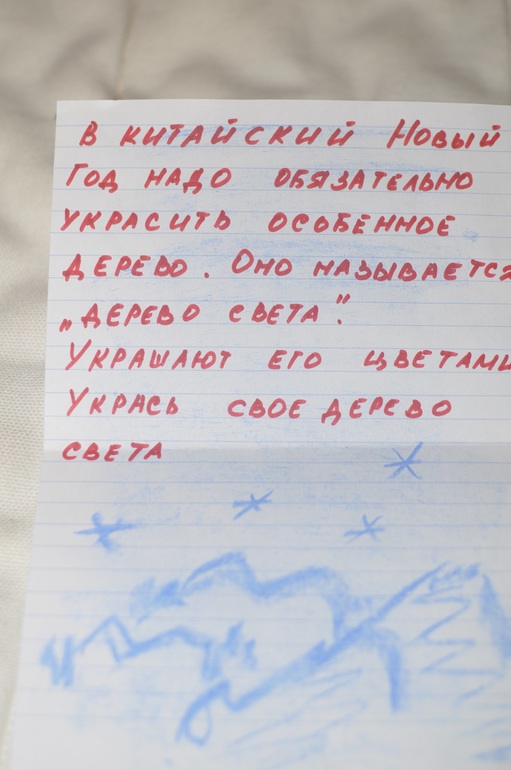 В КИТАЙСКИЙ НОВЫЙ
ГОД НАДО ОБЯЗАТЕЛЬНО
УКРАСИТЬ ОСОБЕННОЕ
ДЕРЕВО. ОНО НАЗЫВАЕТСЯ
„ДЕРЕВО СВЕТА".
УКРАШАЮТ ЕГО ЦВЕТАМИ
УКРАСЬ СВОЕ ДЕРЕВО
СВЕТА